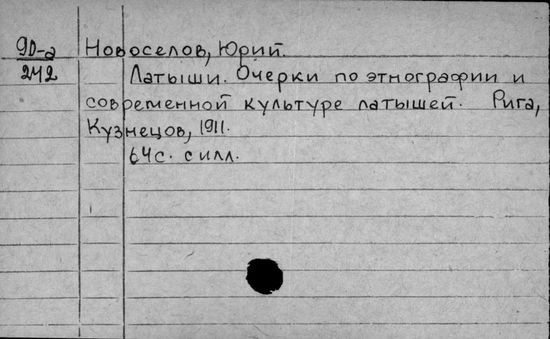 90-а Новоселов, Юрий.
242 Латыши. Очерки по этнографии и
современной культуре латышей. Рига,
Кузнецов, 1911.
64с. силл.